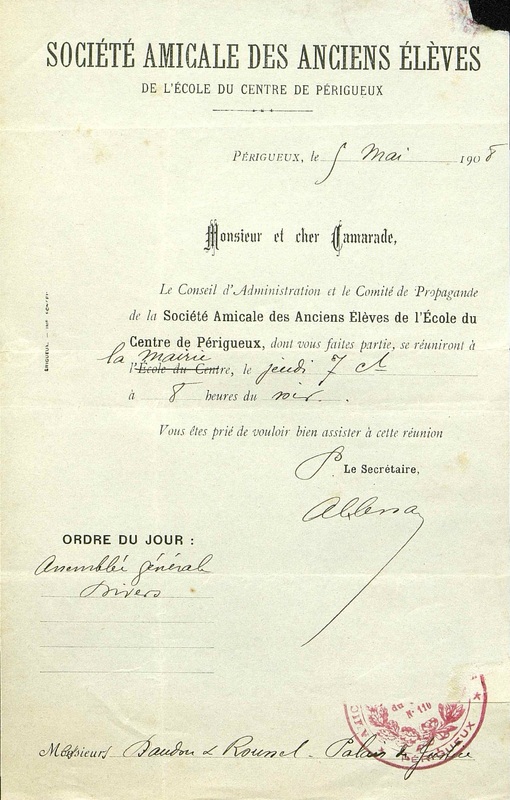 SOCIÉTÉ AMICALE DES ANCIENS ÉLÈVES
DE L'ÉCOLE DU CENTRE DE PÉRIGUEUX
PÉRIGUEUX, le 5 Mai 1908
Monsieur et cher Camarade,
Le Conseil d'Administration et le Comité de Propagande
de la Société Amicale des Anciens Élèves de l'École du
Centre de Périgueux, dont vous faites partie, se réuniront à
la mairie
l'École du Centre, le jeudi 7 ct
à 8 heures du soir.
Vous êtes prié de vouloir bien assister à cette réunion
P. Le Secrétaire,
ORDRE DU JOUR :
Assemblée générale
Divers
du
N° 110
PÉRIGUEUX
Messieurs Baudou & Roussel - Palais de Justice